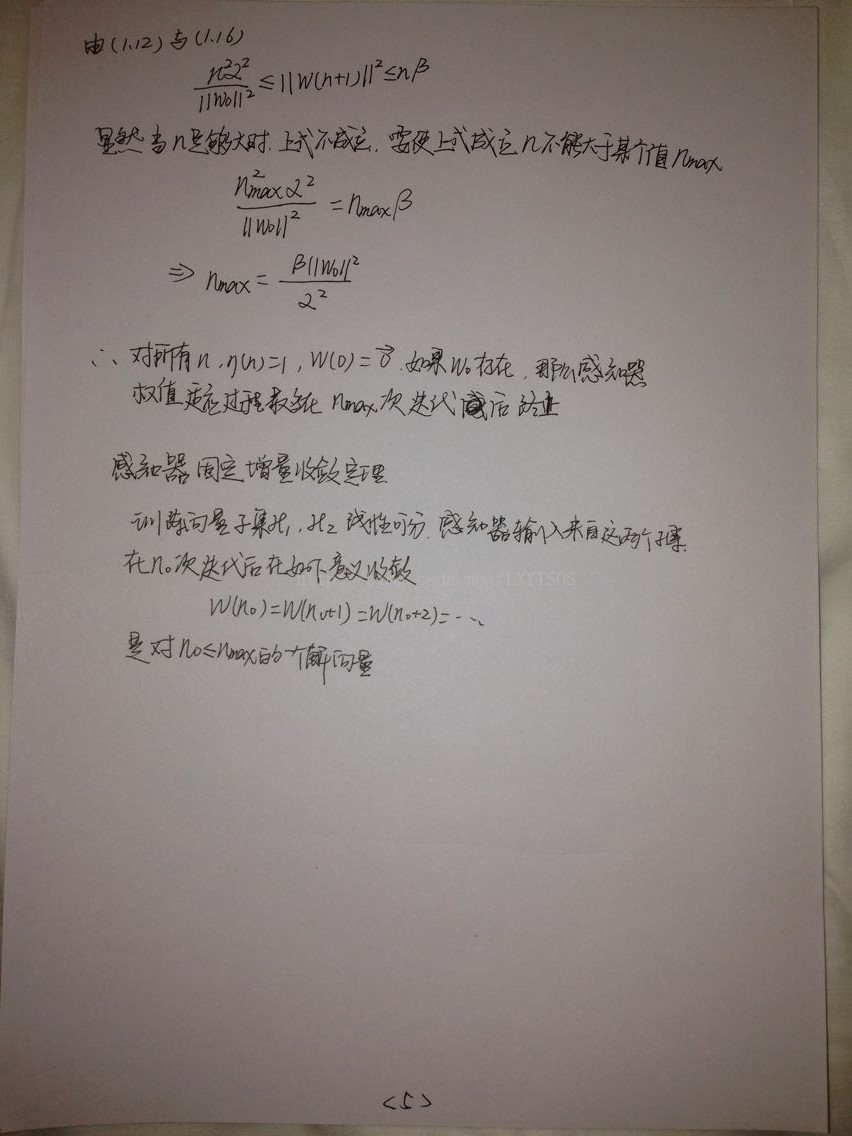 由(1.12)与(1.16)
n²α²/||W₀||² ≤ ||W(n+1)||² ≤ nβ
显然当n足够大时,上式不成立.需使上式成立n不能大于某个值nmax
n²maxα²/||W₀||² = nmaxβ
⇒ nmax = β||W₀||²/α²
∴ 对所有n,η(n)=1,W(0)=0⃗.如果W₀存在,那么感知器
权值适应过程最多在nmax次迭代后终止
感知器固定增量收敛定理
训练向量子集H₁,H₂线性可分.感知器输入来自这两个子集.
在n₀次迭代后在如下意义收敛
W(n₀)=W(n₀+1)=W(n₀+2)=…
是对n₀≤nmax的一个解向量
<5>